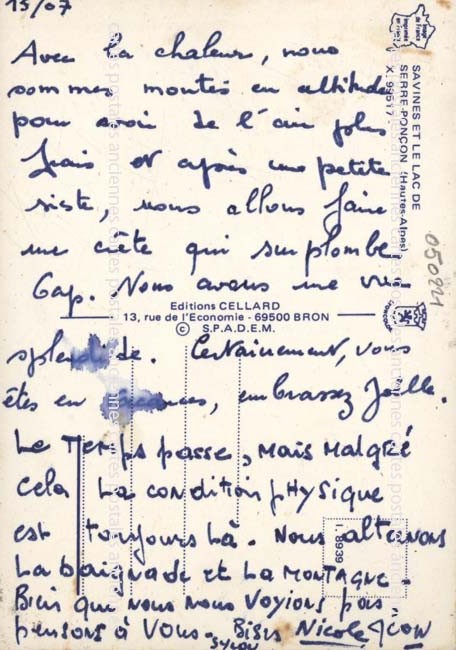 15/07
Avec la chaleur, nous
sommes montés en altitude
pour avoir de l'air plus
frais et après une petite
sieste, nous allons faire
une crête qui surplombe
Gap. Nous avons une vue
Editions CELLARD
13, rue de l'Economie - 69500 BRON
© S.P.A.D.E.M.
splendide. Certainement, vous
êtes en vacances, embrassez Joëlle.
Le Temps passe, mais malgré
cela la condition physique
est toujours là. Nous alternons
la baignade et la montagne.
Bien que nous nous voyions pas
pensons à vous. Bises Nicole
SAVINES ET LE LAC DE
SERRE-PONÇON (Hautes-Alpes)
X. 99517
050921
I. 8939
Image de France
imprimée en France